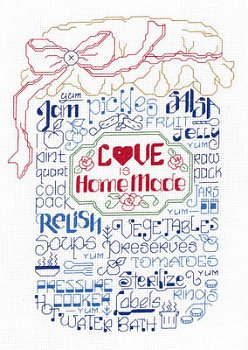 YUM
Jam
pickles
SALSA
FRUIT
Jelly
YUM
paint
quart
cold
pack
LOVE
IS
HomeMade
raw
pack
JARS
YUM
RELISH
VEGETABLES
Soups
YUM
PRESERVES
YUM
TOMATOES
PRESSURE
COOKER
Sterilize
Labels
RINGS
YUM
HOT
WATER BATH